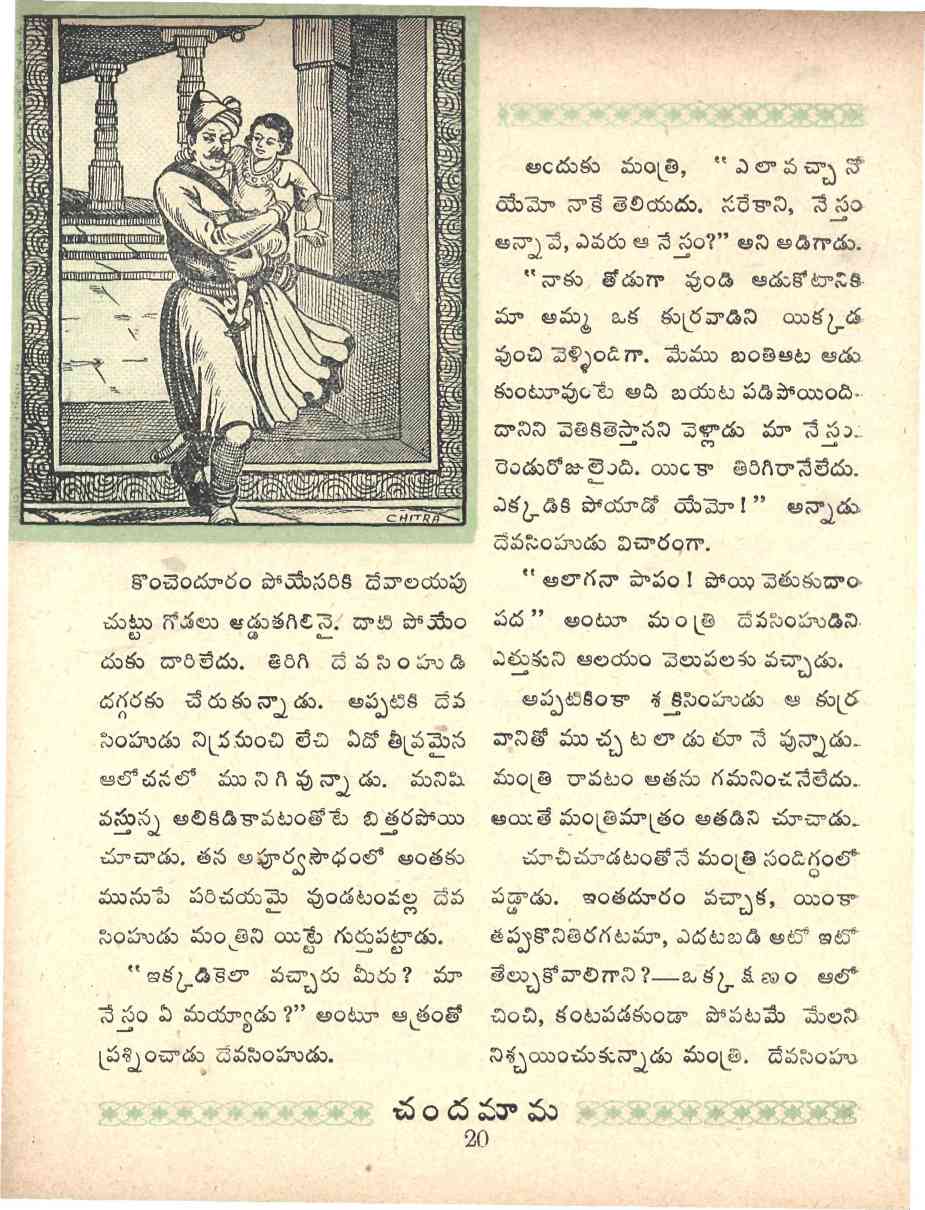 CHITRA
కొంచెందూరం పోయేసరికి దేవాలయపు
చుట్టు గోడలు అడ్డుతగిలినై. దాటి పోయేం
దుకు దారిలేదు. తిరిగి దేవసింహుడి
దగ్గరకు చేరుకున్నాడు. అప్పటికి దేవ
సింహుడు నిద్రనుంచి లేచి ఏదో తీవ్రమైన
ఆలోచనలో మునిగివున్నాడు. మనిషి
వస్తున్న అలికిడికావటంతోటే బిత్తరపోయి
చూచాడు. తన అపూర్వసౌధంలో అంతకు
మునుపే పరిచయమై వుండటంవల్ల దేవ
సింహుడు మంత్రిని యిట్టే గుర్తుపట్టాడు.
“ఇక్కడికెలా వచ్చారు మీరు? మా
నేస్తం ఏ మయ్యాడు?” అంటూ ఆత్రంతో
ప్రశ్నించాడు దేవసింహుడు.
అందుకు మంత్రి, “ఎలావచ్చానో
యేమో నాకే తెలియదు. సరేకాని, నేస్తం
అన్నావే, ఎవరు ఆ నేస్తం?” అని అడిగాడు.
“నాకు తోడుగా వుండి ఆడుకోటానికి
మా అమ్మ ఒక కుర్రవాడిని యిక్కడ
వుంచి వెళ్ళిందిగా. మేము బంతిఆట ఆడు
కుంటూవుంటే అది బయట పడిపోయింది.
దానిని వెతికితెస్తానని వెళ్లాడు మా నేస్తం.
రెండురోజులైంది. యింకా తిరిగిరానేలేదు.
ఎక్కడికి పోయాడో యేమో!” అన్నాడు
దేవసింహుడు విచారంగా.
“అలాగనా పాపం! పోయి వెతుకుదాం
పద” అంటూ మంత్రి దేవసింహుడిని
ఎత్తుకుని ఆలయం వెలుపలకు వచ్చాడు.
అప్పటికింకా శక్తిసింహుడు ఆ కుర్ర
వానితో ముచ్చటలాడులూనే వున్నాడు.
మంత్రి రావటం అతను గమనించనేలేదు.
అయితే మంత్రిమాత్రం అతడిని చూచాడు.
చూచీచూడటంతోనే మంత్రి సందిగ్ధంలో
పడ్డాడు. ఇంతదూరం వచ్చాక, యింకా
తప్పుకొనితిరగటమా, ఎదటబడి అటో ఇటో
తేల్చుకోవాలిగాని?—ఒక్క క్షణం ఆలో
చించి, కంటపడకుండా పోవటమే మేలని
నిశ్చయించుకున్నాడు మంత్రి. దేవసింహు
చందమామ
20